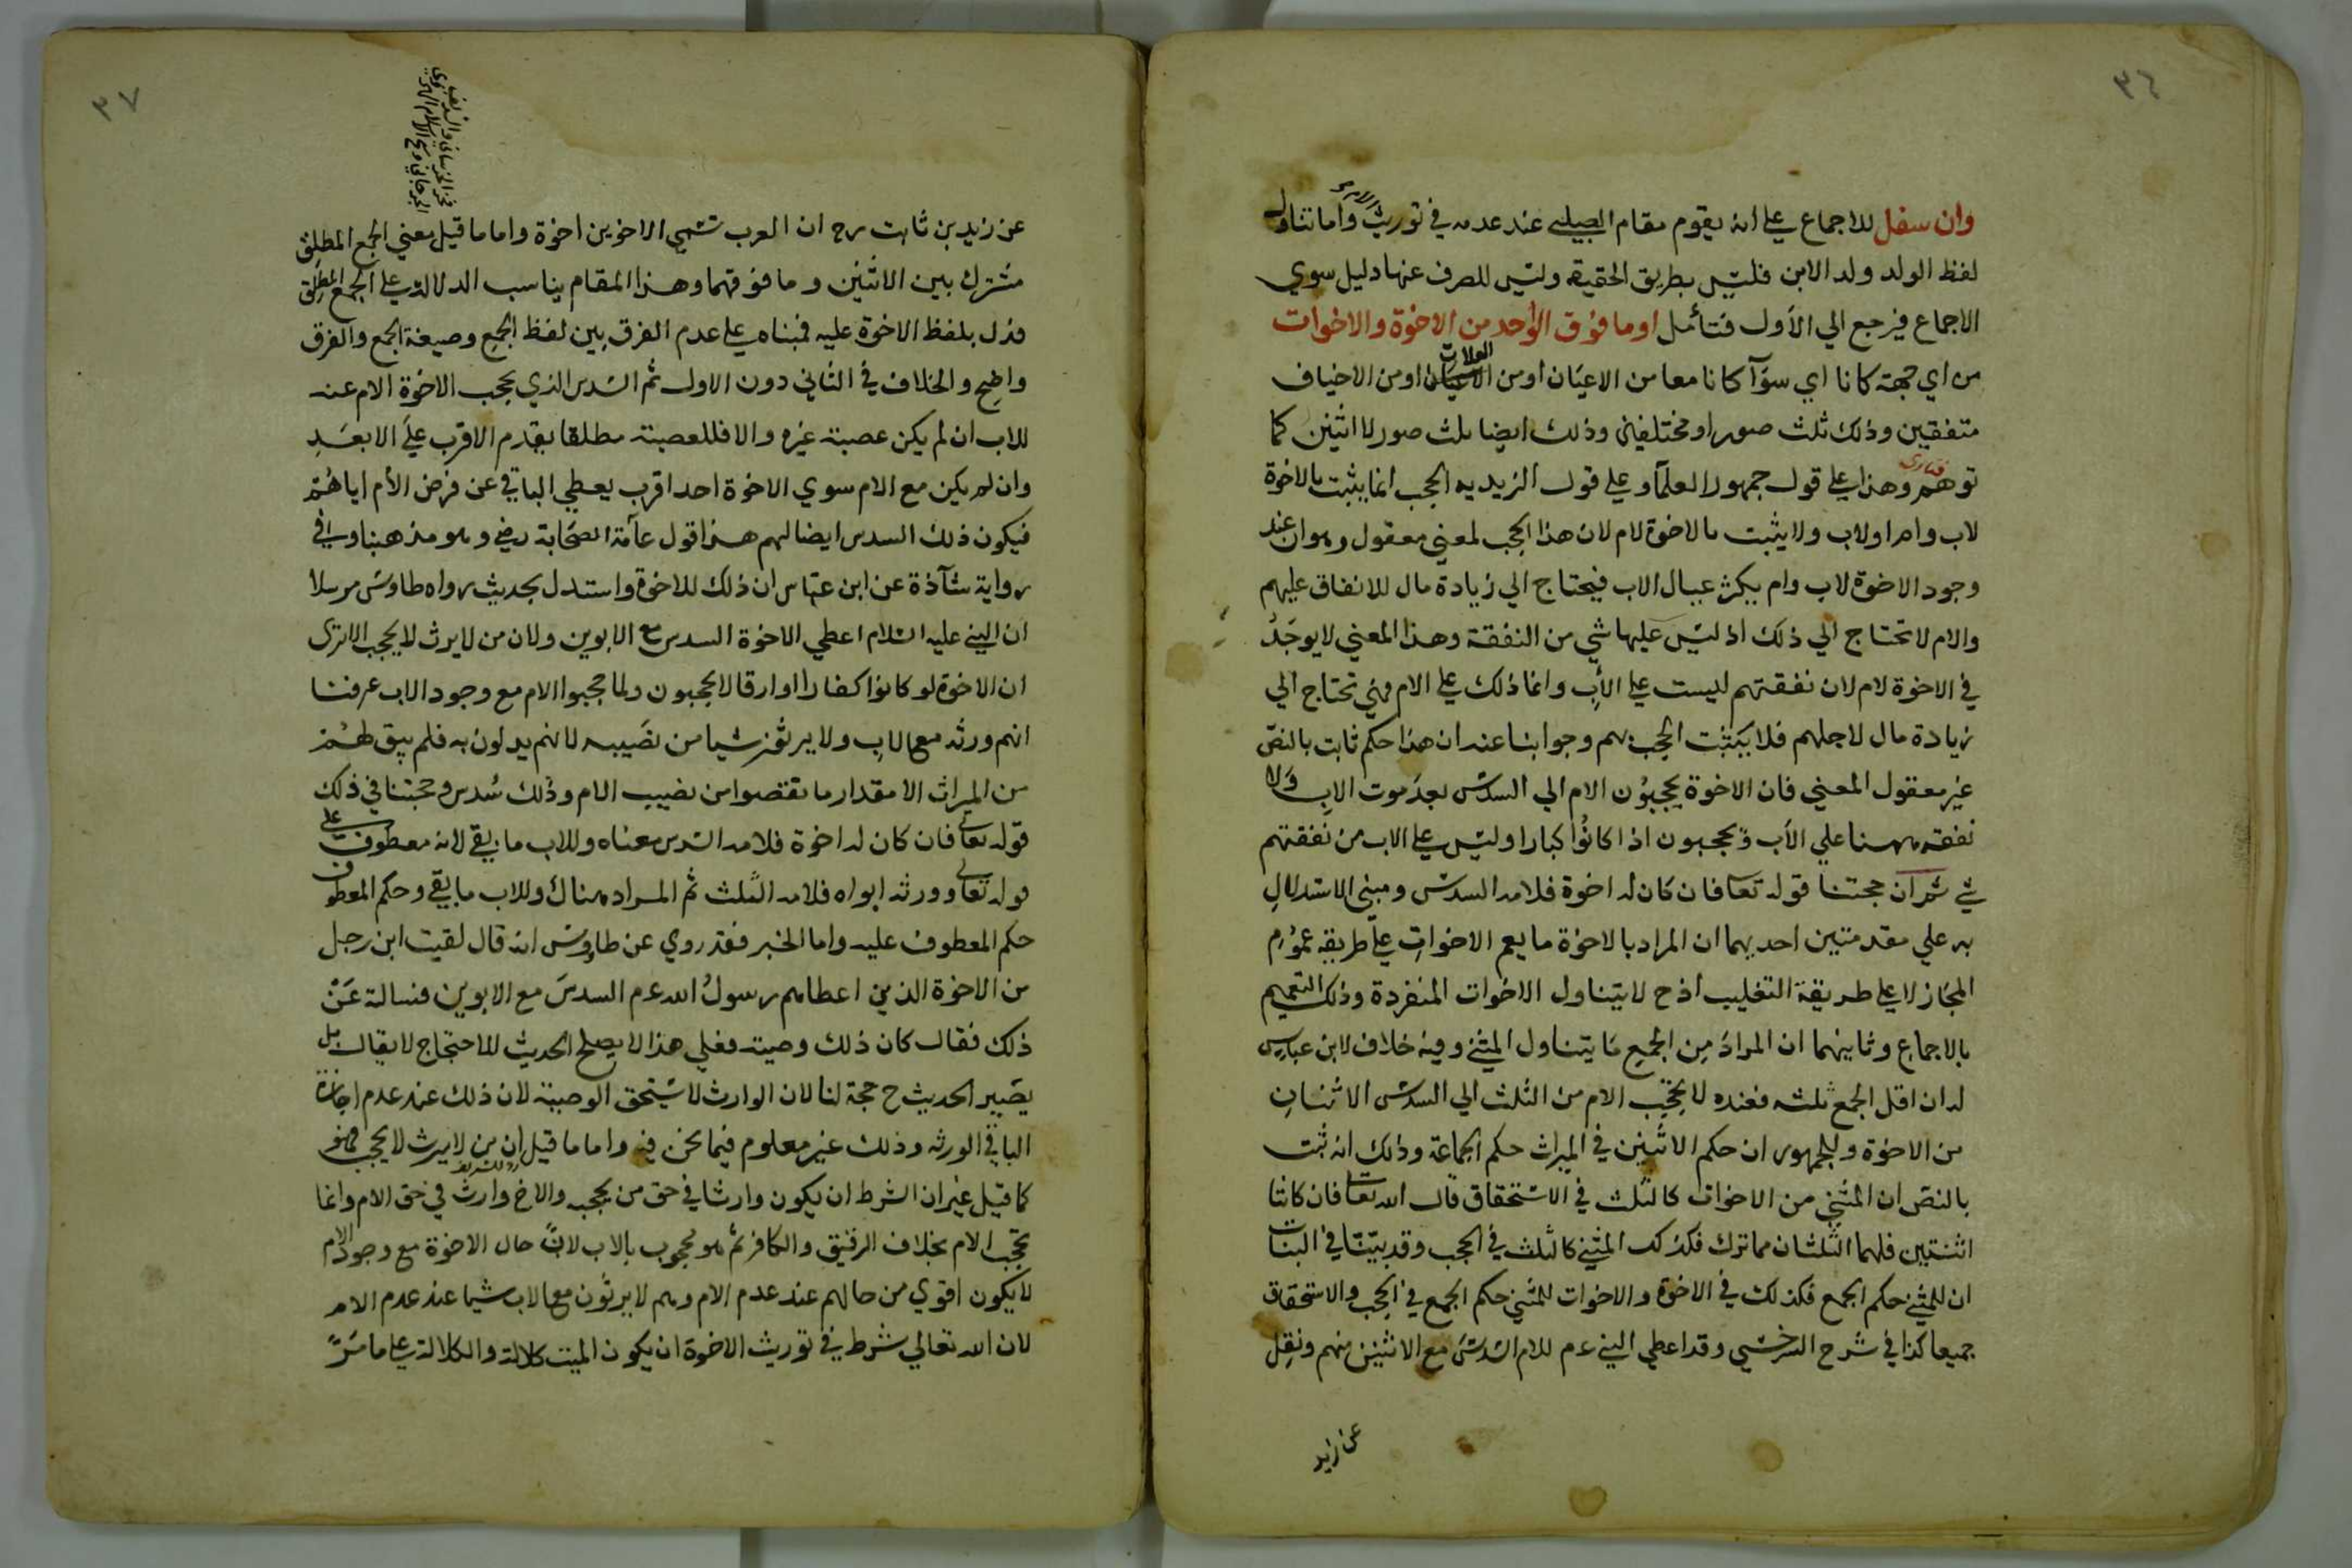 ٣٦
وان سفل للاجماع علي انه يقوم مقام الصلبي عند عدمه في توريث وأما تناول
لفظ الولد ولد الابن فليس بطريق الحقيقة وليس للصرف عنها دليل سوي
الاجماع فيرجع الي الأول فتأمل او ما فوق الواحد من الاخوة والاخوات
من اي جهة كانا اي سوآ كانا معا من الاعيان او من العلات او من الاخياف
متفقين وذلك ثلث صور او مختلفين وذلك ايضا ثلث صور لا اثنين كما
توهم وهذا علي قول جمهور العلمآ وعلي قول الزيديه الحجب انما يثبت بالاخوة
لاب وام او لاب ولا يثبت بالاخوة لام لان هذا الحجب لمعني معقول وهو ان عند
وجود الاخوة لاب وام يكثر عيال الاب فيحتاج الي زيادة مال للانفاق عليهم
والام لا تحتاج الي ذلك اذ ليس عليها شي من النفقة وهذا المعني لا يوجد
في الاخوة لام لان نفقتهم ليست علي الأب وانما ذلك علي الام فهي تحتاج الي
زيادة مال لاجلهم فلا يثبت الحجب بهم وجوابنا عند ان هذا حكم ثابت بالنص
غير معقول المعني فان الاخوة يحجبون الام الي السدس بعد موت الاب ولا
نفقة ههنا علي الأب ويحجبون اذا كانوا كبارا وليس علي الاب من نفقتهم
شي ثم ان حجتنا قوله تعا فان كان له اخوة فلامه السدس ومبني الاستدلال
به علي مقدمتين احديهما ان المراد بالاخوة ما يعم الاخوات علي طريقة عموم
المجاز لا علي طريقة التغليب اذ ح لا يتناول الاخوات المنفردة وذلك التعميم
بالاجماع وثانيهما ان المراد من الجمع ما يتناول المثني وفيه خلاف لابن عباس
له ان اقل الجمع ثلثه فعنده لا يحجب الام من الثلث الي السدس الاثنان
من الاخوة وللجمهور ان حكم الاثنين في الميراث حكم الجماعة وذلك انه ثبت
بالنص ان المثني من الاخوات كالثلث في الاستحقاق قال الله تعا فان كانتا
اثنتين فلهما الثلثان مما ترك فكذلك المثني كالثلث في الحجب وقد بيّنّا في البنات
ان للمثني حكم الجمع فكذلك في الاخوة والاخوات للمثني حكم الجمع في الحجب والاستحقاق
جميعا كذا في شرح السرخسي وقد اعطي النبي عم للام السدس مع الاثنين منهم ونقل
عن زيد
٣٧
عن زيد بن ثابت رح ان العرب تسمي الاخوين اخوة واما ما قيل معني الجمع المطلق
مشترك بين الاثنين وما فوقهما وهذا المقام يناسب الدلالة علي الجمع المطلق
فدل بلفظ الاخوة عليه فمبناه علي عدم الفرق بين لفظ الجمع وصيغة الجمع والفرق
واضح والخلاف في الثاني دون الاول ثم السدس الذي يحجب الاخوة الام عنه
للاب ان لم يكن عصبة غيره والا فللعصبة مطلقا بقدم الاقرب علي الابعد
وان لم يكن مع الام سوي الاخوة احد اقرب يعطي الباقي عن فرض الأم اياهم
فيكون ذلك السدس ايضا لهم هذا قول عآمة الصحابة رضي وهو مذهبنا وفي
رواية شآذة عن ابن عباس ان ذلك للاخوة واستدل بحديث رواه طاوس مرسلا
ان النبي عليه السلام اعطي الاخوة السدس مع الابوين ولان من لا يرث لا يحجب الا تري
ان الاخوة لو كانوا كفارا او ارقا لا يحجبون ولما حجبوا الام مع وجود الاب عرفنا
انهم ورثه مع الاب ولا يرثون شيا من نصيبه لانهم يدلون به فلم يبق لهم
من الميراث الا مقدار ما نقصوا من نصيب الام وذلك سُدس وحجتنا في ذلك
قوله تعا فان كان له اخوة فلامه السدس معناه وللاب ما بقي لانه معطوف علي
قوله تعالي وورثه ابواه فلامه الثلث ثم المراد هناك وللاب ما بقي وحكم المعطوف
حكم المعطوف عليه واما الخبر فقد روي عن طاوس انه قال لقيت ابن رجل
من الاخوة الذين اعطاهم رسول الله عم السدس مع الابوين فسالته عن
ذلك فقال كان ذلك وصية فعلي هذا لا يصلح الحديث للاحتجاج لا يقال بل
يصير الحديث ح حجة لنا لان الوارث لا يستحق الوصية لان ذلك عند عدم اجازة
الباقي الورثه وذلك غير معلوم فيما نحن فيه واما ما قيل ان من لا يرث لا يحجب فهو
كما قيل غير ان الشرط ان يكون وارثا في حق من يحجبه والاخ وارث في حق الام وانما
يحجب الام بخلاف الرقيق والكافر ثم هو محجوب بالاب لان حال الاخوة مع وجود الام
لا يكون اقوي من حالهم عند عدم الام وهم لا يرثون مع الاب شيا عند عدم الام
لان الله تعالي شرط في توريث الاخوة ان يكون الميت كلالة والكلالة علي ما مرّ